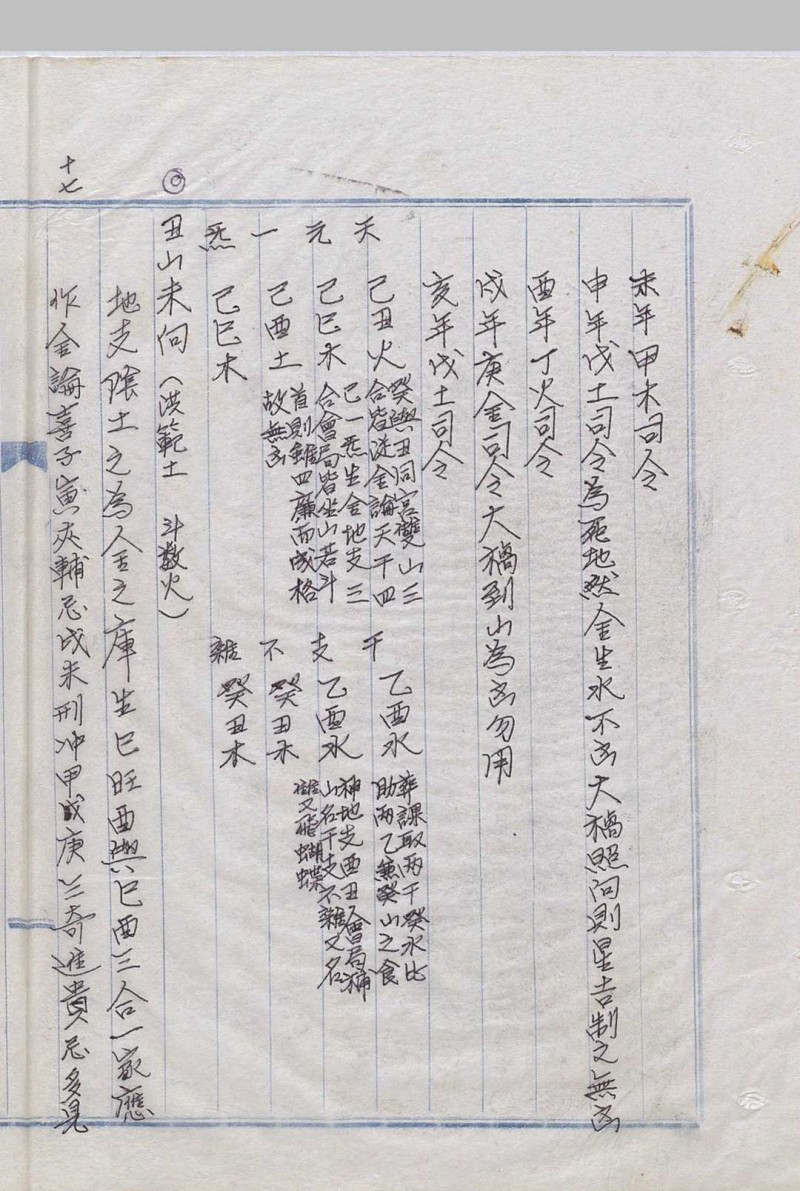 未年甲木司令
申年戊土司令為死地然金生水不凶大禍照向則星吉制之無凶
酉年丁火司令
戌年庚金司令大禍到山為凶勿用
亥年戊土司令
天元一炁
己丑火
己巳木
己酉土
己巳木
癸與丑同宮雙山三
合皆從金論天干四
己一炁生金地支三
合會局皆坐山若斗
首則雖四廉而成格
故無凶
干支不雜
乙酉水
乙酉水
癸丑木
癸丑木
葬課取兩干癸水比
助兩乙兼癸山之食
神地支酉丑會局補
山名干支不雜又名
雙飛蝴蝶
◎
丑山未向（洪範土 斗數火）
地支陰土之為金之庫生巳旺酉與巳酉三合一家應
作金論喜子寅夾輔忌戌未刑冲甲戊庚三奇進貴忌多見
十七